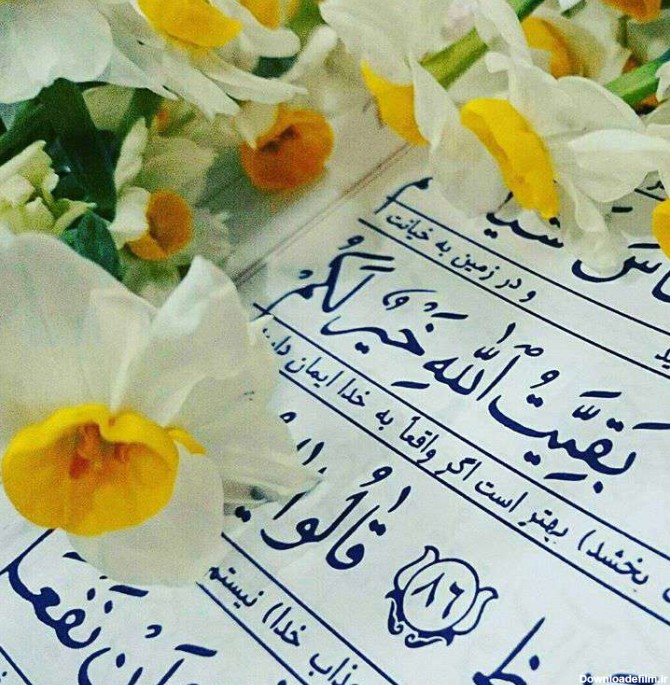 و در زمین به خیانت
بَقِیَّتُ اللّٰهِ خَیْرٌ لَکُمْ
بخشد) بهتر است اگر واقعاً به خدا ایمان
﴿٨٦﴾ قالُوا
خدا) نیستم
أَنْ نَفْعَلَ
Downloadefilm.ir